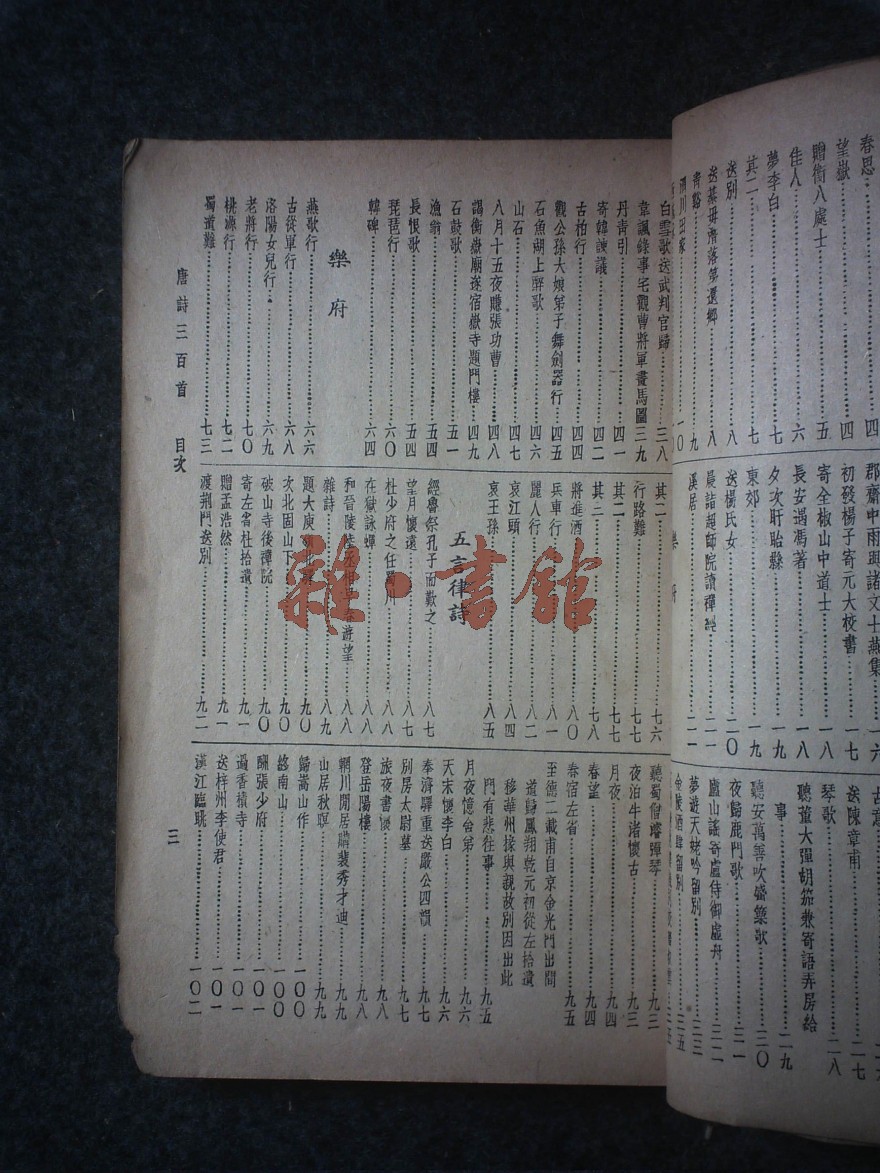 春思
望嶽 四
贈衛八處士 五
佳人 六
夢李白 七
其二 七
送別 八
送綦毋潛落第還鄉 八
青谿 九
郡齋中雨與諸文士燕集 一七
初發揚子寄元大校書 一七
寄全椒山中道士 一八
長安遇馮著 一八
夕次盱眙縣 一九
東郊 一九
送楊氏女 二〇
晨詣超師院讀禪經
溪居 二一
樂府
古意
送陳章甫 二七
琴歌 二八
聽董大彈胡笳兼寄語弄房給
事 二九
聽安萬善吹觱篥歌 三〇
夜歸鹿門歌
廬山謠寄盧侍御虛舟
夢遊天姥吟留別
金陵酒肆留別
白雪歌送武判官歸 三八
韋諷錄事宅觀曹將軍畫馬圖 三九
丹青引 四一
寄韓諫議 四二
古柏行 四四
觀公孫大娘弟子舞劍器行 四五
石魚湖上醉歌 四六
山石 四七
八月十五夜贈張功曹 四八
謁衡嶽廟遂宿嶽寺題門樓 四九
石鼓歌 五一
漁翁 五四
長恨歌 五四
琵琶行 六〇
韓碑 六四
樂府
燕歌行 六六
古從軍行 六八
洛陽女兒行 六九
老將行 七〇
桃源行 七二
蜀道難 七三
其二 七六
行路難 七七
其二 七七
其三 七八
將進酒 八〇
兵車行 八一
麗人行 八二
哀江頭 八四
哀王孫 八五
五言律詩
經魯祭孔子而歎之 八七
望月懷遠 八七
杜少府之任蜀川 八八
在獄詠蟬 八八
和晉陵陸丞早春遊望 八八
雜詩 八九
題大庾嶺北驛 九〇
次北固山下 九〇
破山寺後禪院 九〇
寄左省杜拾遺 九一
贈孟浩然 九一
渡荆門送別 九二
聽蜀僧濬彈琴 九三
夜泊牛渚懷古 九三
月夜 九四
春望 九四
春宿左省 九五
至德二載甫自京金光門出間
道歸鳳翔乾元初從左拾遺
移華州掾與親故別因出此
門有悲往事 九五
月夜憶舍弟 九六
天末懷李白 九六
奉濟驛重送嚴公四韻 九七
別房太尉墓 九七
旅夜書懷 九八
登岳陽樓 九八
輞川閒居贈裴秀才迪 九九
山居秋暝 九九
歸嵩山作 一〇〇
終南山 一〇〇
酬張少府 一〇一
過香積寺 一〇一
送梓州李使君 一〇一
漢江臨眺 一〇二
唐詩三百首 目次 三
雜·書館